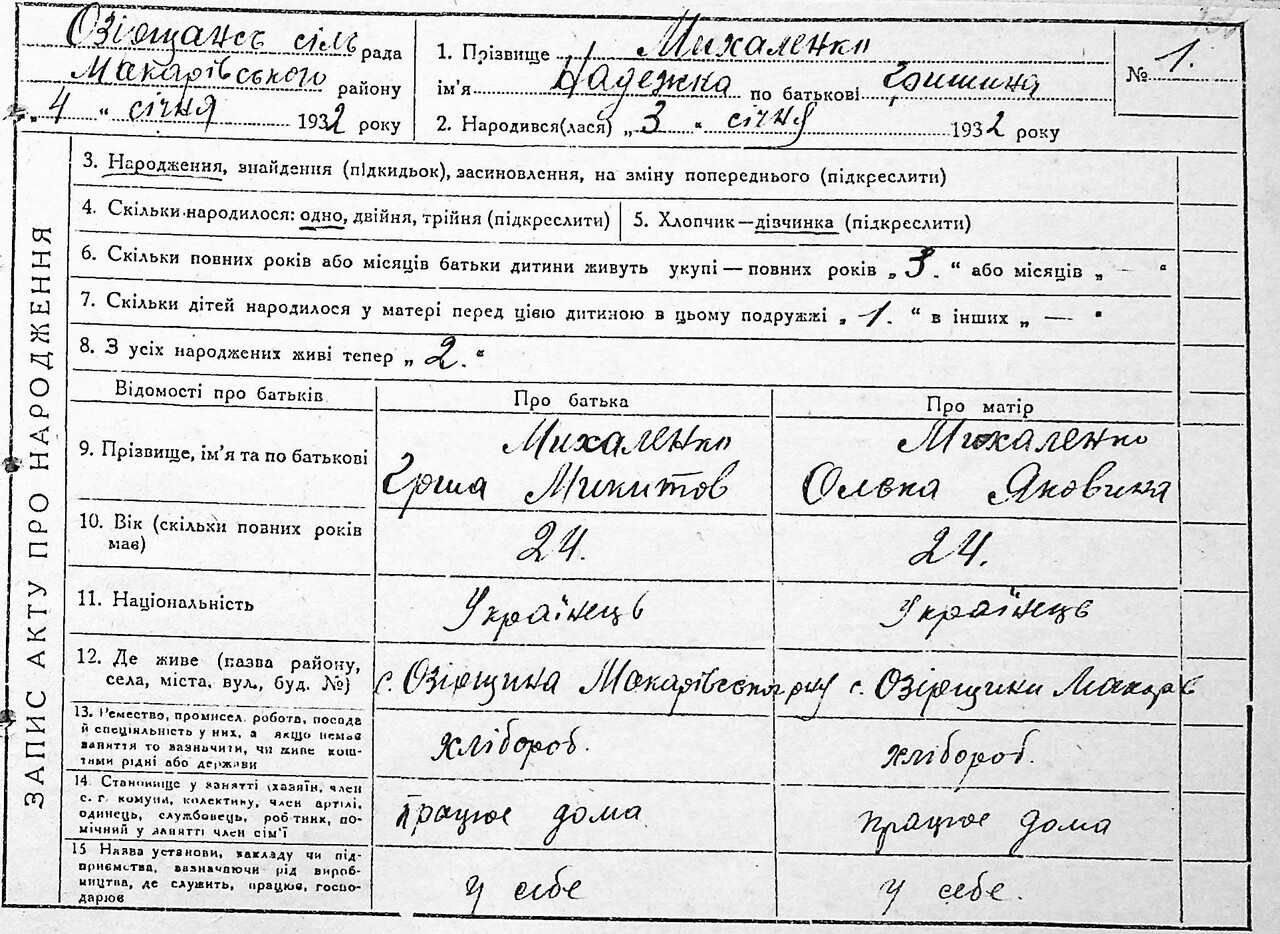 Озірщансь сіль рада
Макарівського району
„ 4 “ січня 1932 року
1. Прізвище Михаленко
ім'я Надежка по батькові Гришина
2. Народився(лася) „ 3 “ січня 1932 року
№ 1.
ЗАПИС АКТУ ПРО НАРОДЖЕННЯ
3. Народження, знайдення (підкидьок), засиновлення, на зміну попереднього (підкреслити)
4. Скільки народилося: одно, двійня, трійня (підкреслити)
5. Хлопчик—дівчинка (підкреслити)
6. Скільки повних років або місяців батьки дитини живуть укупі — повних років „ 3. “ або місяців „ — “
7. Скільки дітей народилося у матері перед цією дитиною в цьому подружжі „ 1. “ в інших „ — “
8. З усіх народжених живі тепер „ 2. “
Відомості про батьків
Про батька
Про матір
9. Прізвище, ім'я та по батькові
Михаленко
Гриша Микитов
Михаленко
Олєна Яковина
10. Вік (скільки повних років
має)
24.
24.
11. Національність
Українець
Українець
12. Де живе (назва району,
села, міста, вул., буд. №)
с. Озірщина Макарівського рну
с. Озірщики Макарів
13. Ремество, промисел, робота, посада
й спеціяльність у них, а якщо немає
заняття то зазначити, чи живе кош-
тами рідні або держави
хлібороб.
хлібороб.
14. Становище у занятті (хазяїн, член
с. г. комуни, колективу, член артілі,
одинець, службовець, робітник, по-
мічний у занятті член сім'ї
працює дома
працює дома
15 Назва установи, закладу чи під-
приємства, зазначаючи рід вироб-
ництва, де служить, працює, госпо-
дарює
у себе
у себе.